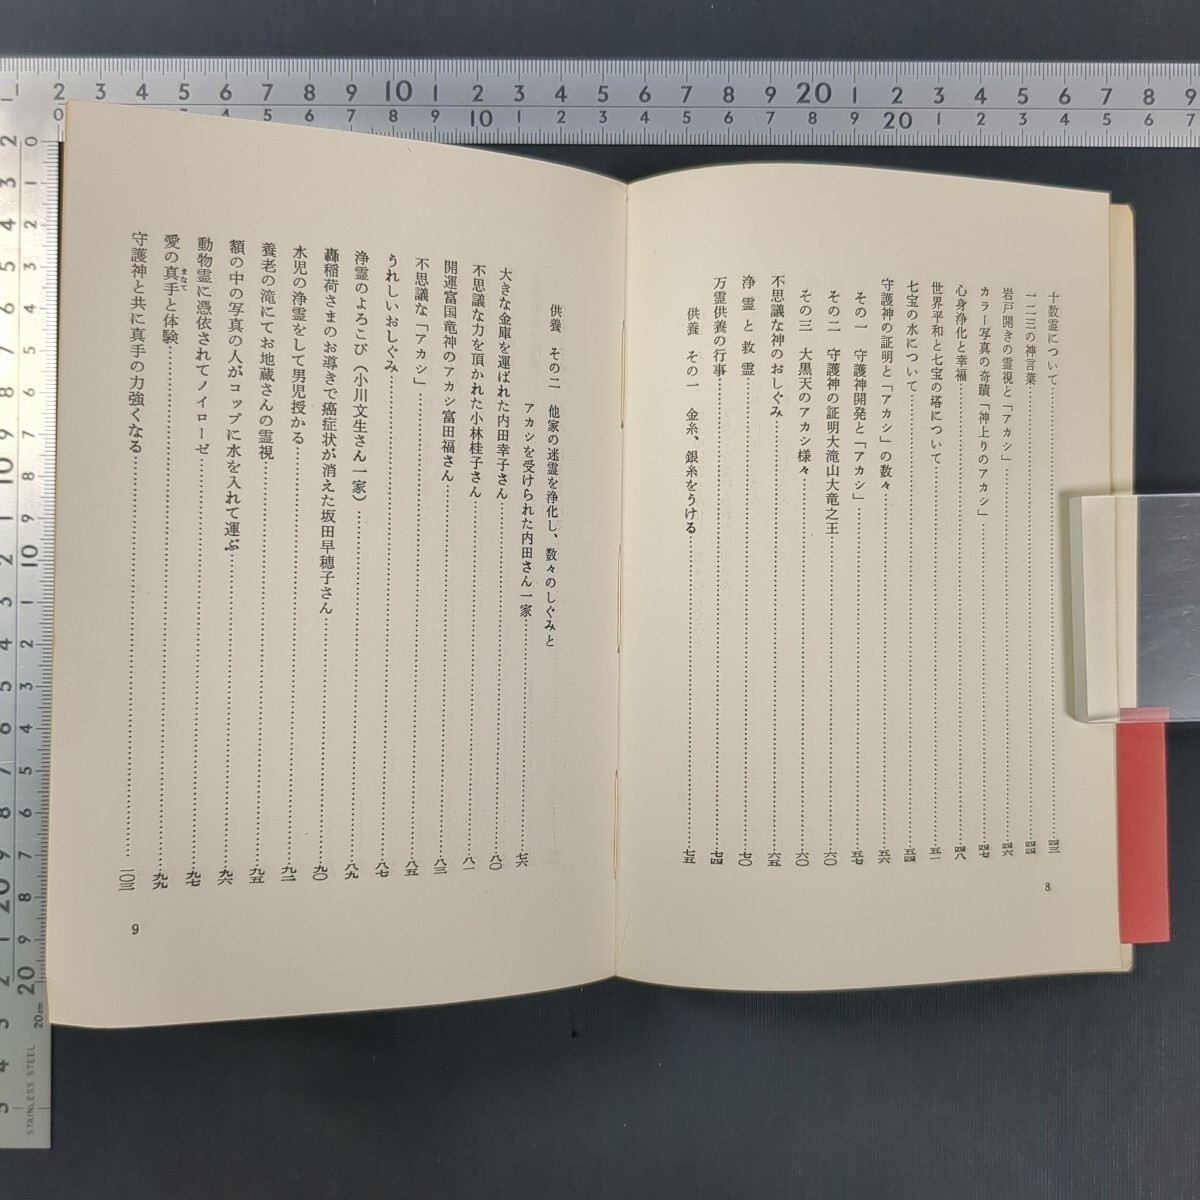 十数霊について……四三
一二三の神言葉……四四
岩戸開きの霊視と「アカシ」……四六
カラー写真の奇蹟「神上りのアカシ」……四七
心身浄化と幸福……四八
世界平和と七宝の塔について……五一
七宝の水について……五四
守護神の証明と「アカシ」の数々……五六
その一 守護神開発と「アカシ」……五七
その二 守護神の証明大滝山大竜之王……六〇
その三 大黒天のアカシ様々……六〇
不思議な神のおしぐみ……六五
浄霊と救霊……七〇
万霊供養の行事……七四
供養 その一 金糸、銀糸をうける……七五
8
供養 その二 他家の迷霊を浄化し、数々のしぐみと
アカシを受けられた内田さん一家……七六
大きな金庫を運ばれた内田幸子さん……八〇
不思議な力を頂かれた小林桂子さん……八一
開運富国竜神のアカシ富田福さん……八三
不思議な「アカシ」……八五
うれしいおしぐみ……八七
浄霊のよろこび（小川文生さん一家）……八九
轟稲荷さまのお導きで癌症状が消えた坂田早穂子さん……九〇
水児の浄霊をして男児授かる……九二
養老の滝にてお地蔵さんの霊視……九五
額の中の写真の人がコップに水を入れて運ぶ……九六
動物霊に憑依されてノイローゼ……九七
愛の真手と体験……九九
まなて
守護神と共に真手の力強くなる……一〇三
9
STAINLESS STEEL
20cm